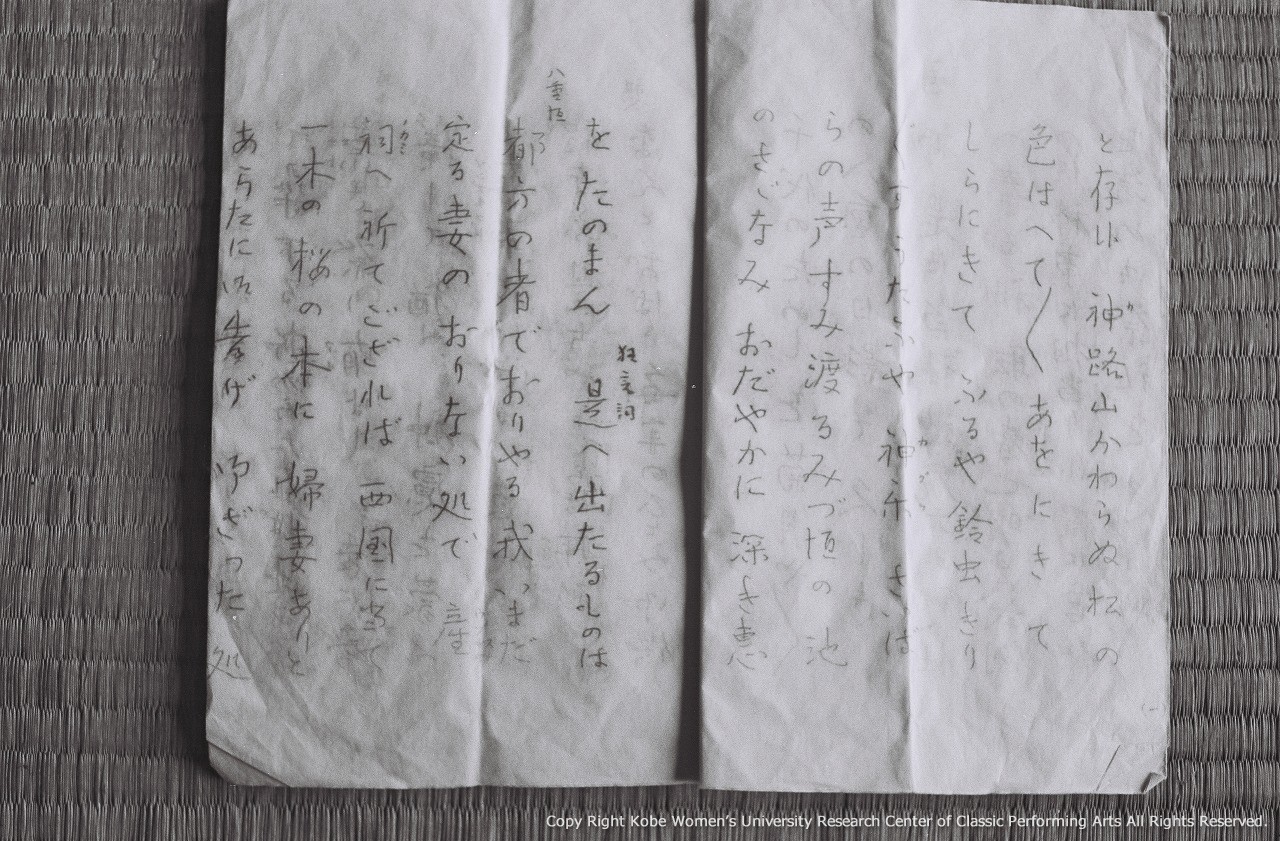 と存候 神路山かわらぬ松の
色はへて〳〵 あをにきて
しらにきて ふるや鈴虫きり
うたふや 神楽 さいば
らの声 すみ渡るみづ垣の 池
のさゞなみ おだやかに 深き恵
をたのまん
狂言詞
是へ出たるものは
八重垣
都方の者でおりやる我いまだ
定る妻のおりない処で
祠へ祈てござれば 西国に当て
一木の桜の本に 婦妻ありと
あらたに御告げ
処
Copy Right Kobe Women's University Research Center of Classic Performing Arts All Rights Reserved.